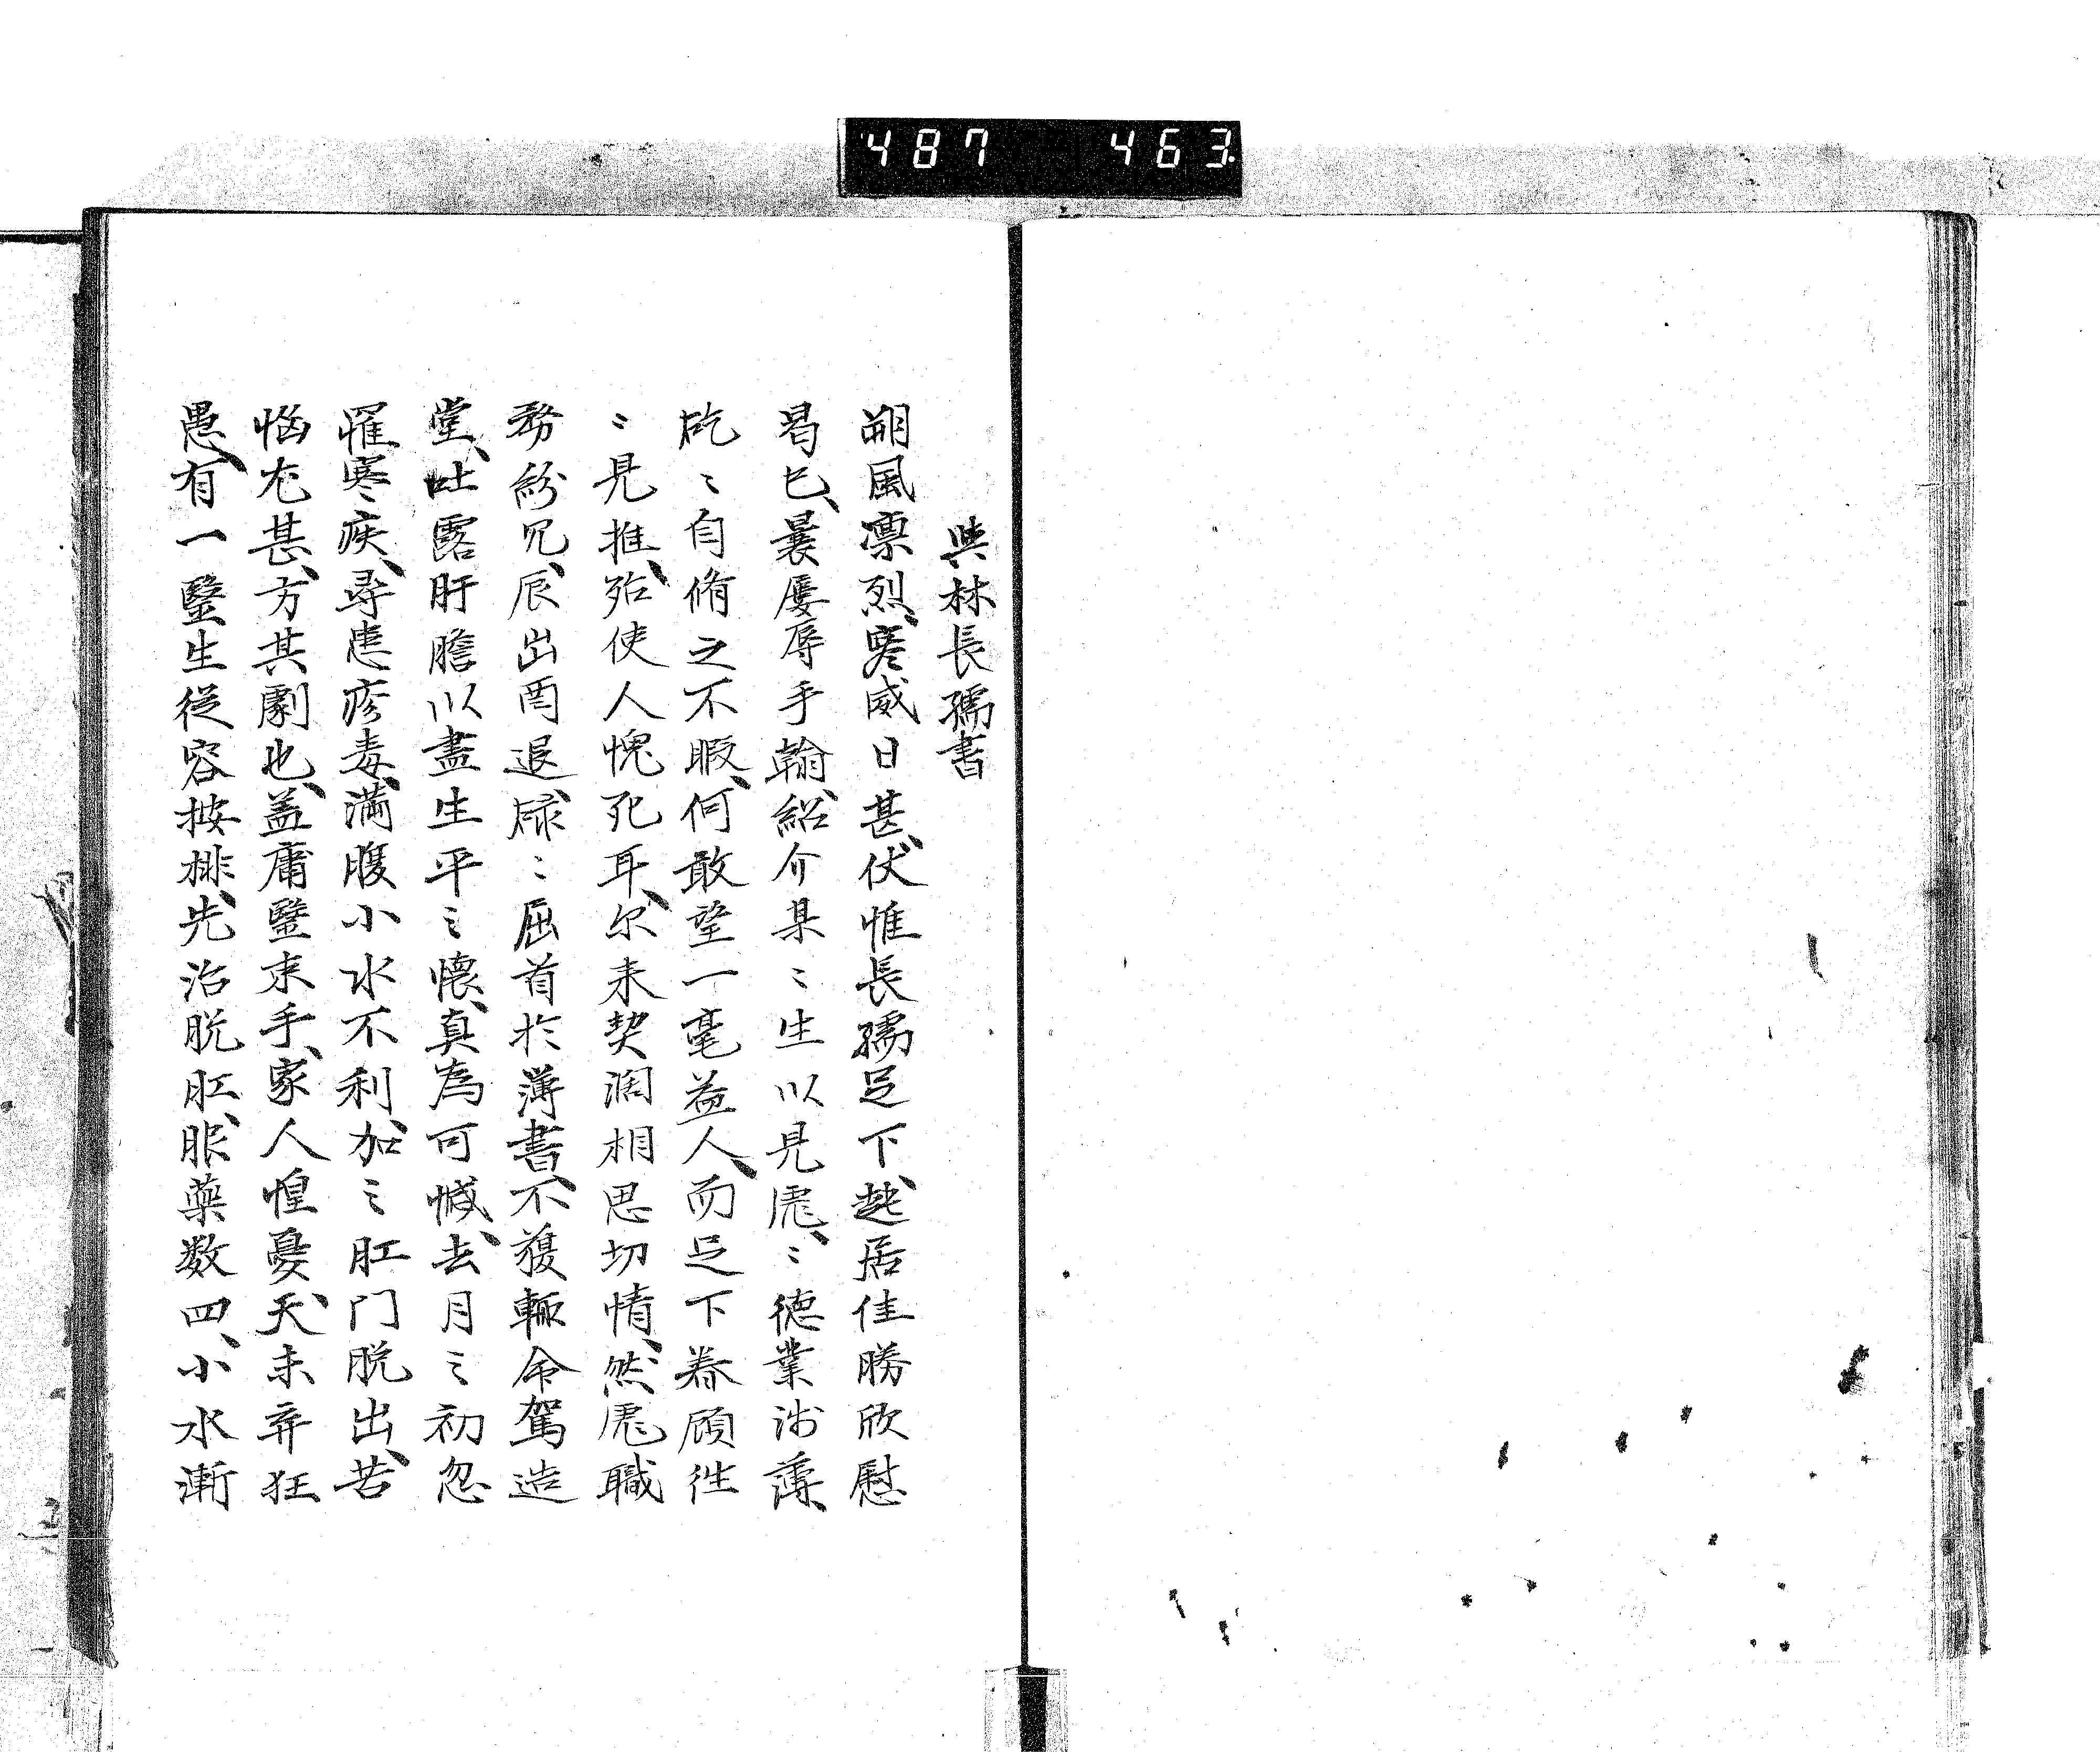 487 463
與林長孺書
朔風凛烈、寒威日甚、伏惟長孺足下、起居佳勝欣慰
曷已、曩屡辱手翰、紹介某〻生以見虎、〻德業淺薄、
矻〻自脩之不暇、何敢望一毫益人、而足下眷顧徃
〻見推、殆使人愧死耳、尔来契濶相思切情、然虎職
務紛冗、辰出酉退、碌〻屈首於薄書、不獲輙命駕造
堂、吐露肝膽以盡生平之懷、真為可憾、去月之初忽
罹寒疾、尋患疹毒、満腹小水不利、加之肛门脱出、苦
悩尤甚、方其劇也、盖庸醫束手、家人惶憂、天未弃狂
愚、有一醫生従容按排、先治脱肛、服薬数四、小水漸